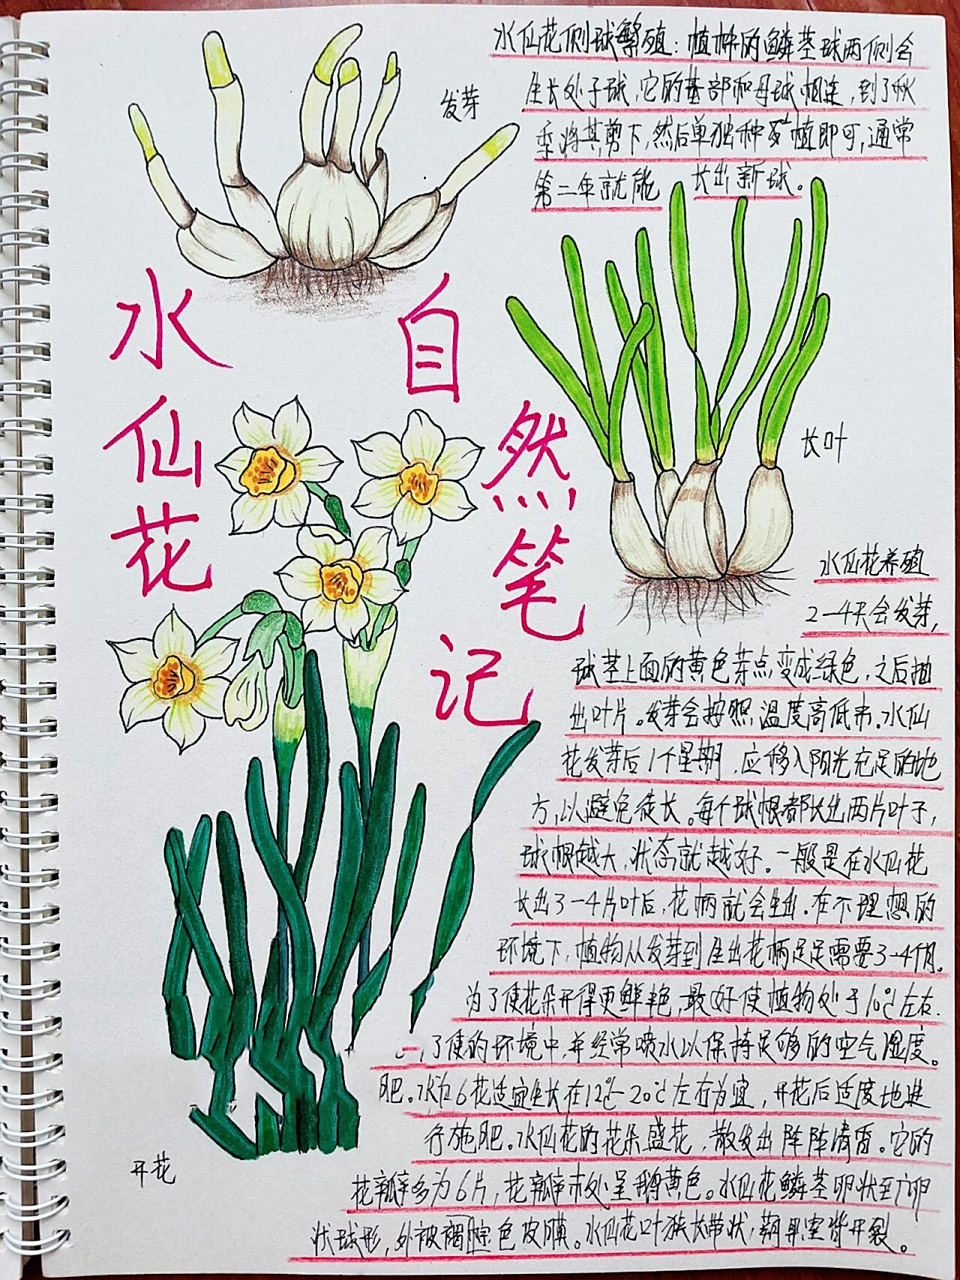 水仙花侧球繁殖：植株的鳞茎球两侧会
生长处子球，它的基部和母球相连，到了秋
季将其剪下，然后单独种植即可，通常
第二年就能 长出新球。
发芽
水仙花
自然笔记
长叶
水仙花养殖
2-4天会发芽，
球茎上面的黄色芽点变成绿色，之后抽
出叶片。发芽会按照温度高低来。水仙
花发芽后1个星期，应移入阳光充足的地
方，以避免徒长。每个球根都长出两片叶子，
球根越大，状态就越好。一般是在水仙花
长出3-4片叶后，花柄就会生出。在不理想的
环境下，植物从发芽到生出花柄足足需要3-4个月。
为了使花朵开得更鲜艳，最好使植物处于10℃左右.
了使的环境中，并经常喷水以保持足够的空气湿度。
肥。水仙花适宜生长在12℃-20℃左右为宜，开花后适度地进
行施肥。水仙花的花朵盛花，散发出阵阵清香。它的
花瓣多为6片，花瓣末处呈鹅黄色。水仙花鳞茎卵状至广卵
状球形，外被褐 色皮膜。水仙花叶狭长带状，蒴果室背开裂。
开花